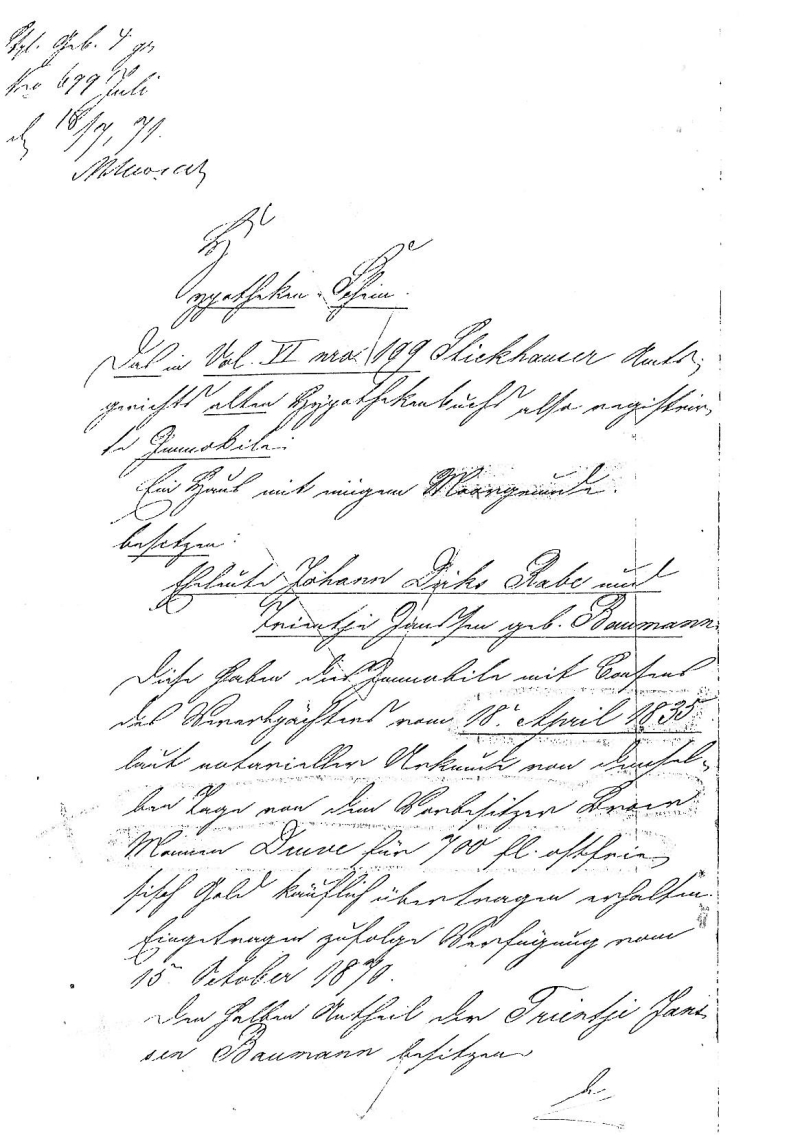 Geb. 4 gr
Nro 699 Juli
d 18/7, 71.
Hypotheken-Schein.
Das in Vol. VI nro: 199 Stickhauser Amts-
gerichts alten Hypothekenbuchs also registrir-
te Immobile:
Ein Haus mit einigem Moorgrunde.
besitzen:
Eheleute Johann Dirks Rabe und
Trientje Janssen geb. Baumann.
Diese haben dies Immobile mit Consens
des Vererbpächters vom 18. April 1835
laut notarieller Urkunde von demsel-
ben Tage von dem Vorbesitzer Broer
Mennen Duve für 700 fl. ostfrie-
sisch Gold käuflich übertragen erhalten.
Eingetragen zufolge Verfügung vom
15. October 1870.
Den halben Antheil der Trientje Jans
sen Baumann besitzen